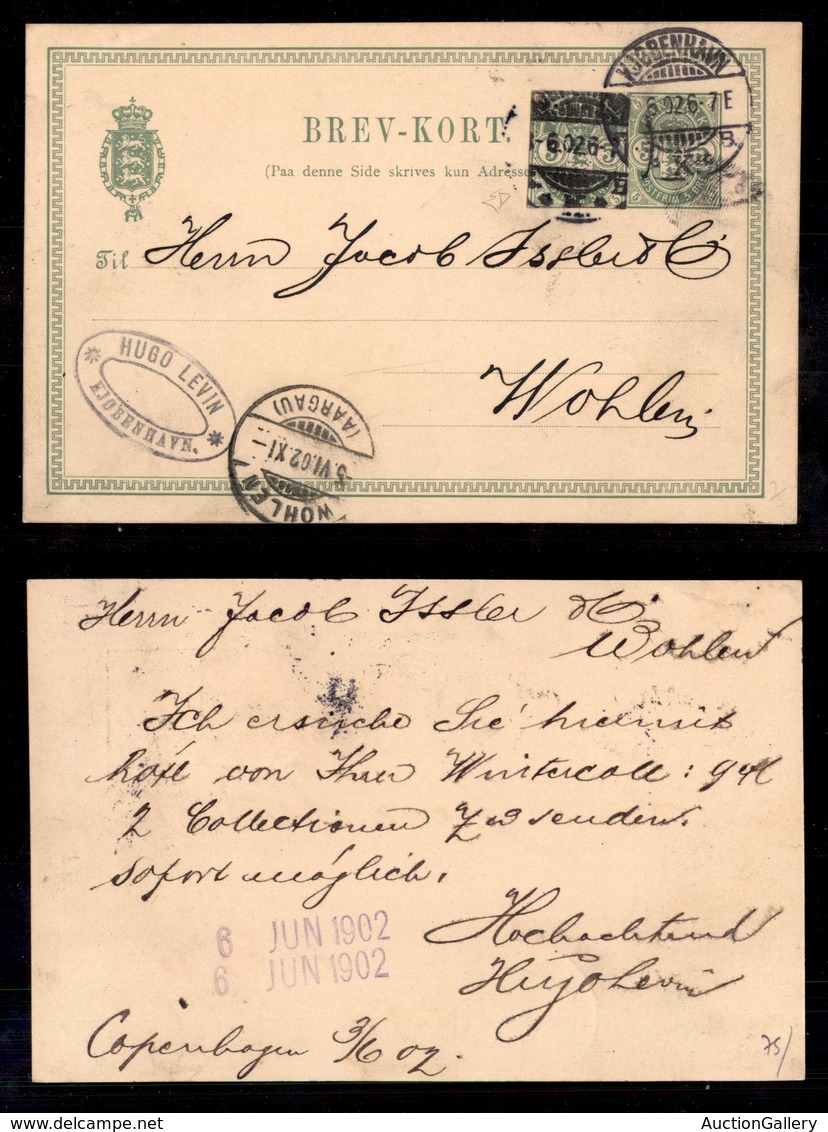 BREV-KORT.
(Paa denne Side skrives kun Adresse
KJØBENHAVN
6.02 6-7E
B.
6.02 6-7
B
5 5
Til Herrn Jacob Issler & Cº
Wohlen
HUGO LEVIN
KJØBENHAVN.
(AARGAU)
-5.VI.02.XI-
WOHLEN
Herrn Jacob Issler & Cº
Wohlen
Ich ersuche Sie hiermit
höfl von Ihrer Wintercoll:
2 Collectionen zu senden.
sofort möglich.
Hochachtend
Hugo Levin
6 JUN 1902
6 JUN 1902
Copenhagen 3/6 02.
75/
AuctionGallery